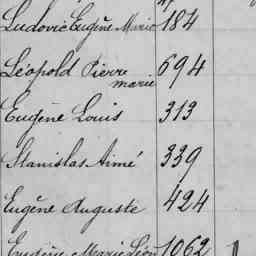 Ludovic Eugène Marie 184
Léopold Pierre 694
marie
Eugène Louis 313
Stanislas Aimé 339
Eugène Auguste 424
Eugène Marie Léon 1062